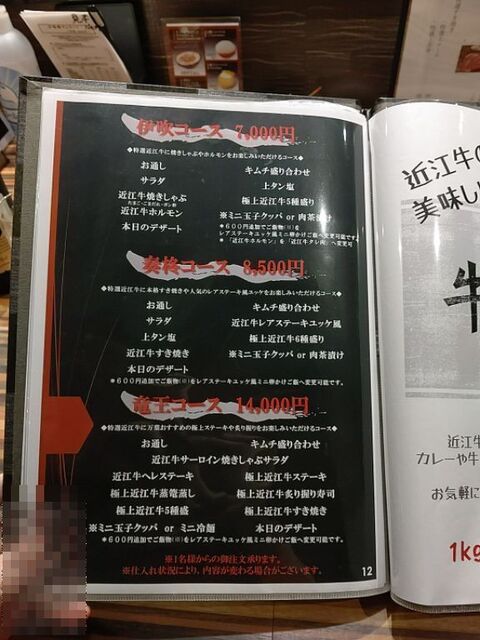 伊吹コース 7,000円
◆特選近江牛に焼きしゃぶやホルモンをお楽しみいただけるコース◆
お通し キムチ盛り合わせ
サラダ 上タン塩
近江牛焼きしゃぶ 極上近江牛5種盛り
近江牛ホルモン ※ミニ玉子クッパ or 肉茶漬け
本日のデザート
*600円追加でご飯物(※)を
レアステーキユッケ風ミニ卵かけご飯へ変更可能です。
*「近江牛ホルモン」を「近江牛タレ肉」へ変更可
8,500円
◆特選近江牛に本格すき焼きや人気のレアステーキ風ユッケをお楽しみいただけるコース◆
お通し キムチ盛り合わせ
サラダ 近江牛レアステーキユッケ風
上タン塩 極上近江牛6種盛り
近江牛すき焼き ※ミニ玉子クッパ or 肉茶漬け
本日のデザート
*600円追加でご飯物(※)をレアステーキユッケ風ミニ卵かけご飯へ変更可能です。
竜王コース 14,000円
◆特選近江牛に万葉おすすめの極上ステーキや炙り握りをお楽しみいただけるコース◆
お通し キムチ盛り合わせ
近江牛サーロイン焼きしゃぶサラダ
近江牛ヘレステーキ 極上近江牛ステーキ
極上近江牛蒸篭蒸し 極上近江牛炙り握り寿司
極上近江牛5種盛 極上近江牛すき焼き
※ミニ玉子クッパ or ミニ冷麺 本日のデザート
*600円追加でご飯物(※)をレアステーキユッケ風ミニ卵かけご飯へ変更可能です。
※1名様からの御注文承ります。
※仕入れ状況により、内容が変わる場合がございます。
12
近江牛の
美味し
牛
近江牛
カレーや牛
お気軽に
1kg